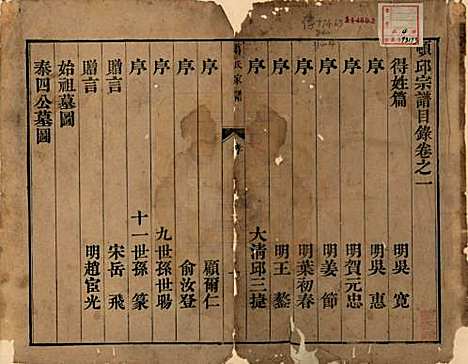 頓邱宗譜目錄卷之一
得姓篇 明吳 寬
序 明吳 惠
序 明賀元忠
序 明姜 節
序 明葉初春
序 明王 鏊
序 大清邱三捷
氏家譜
序
序 顧爾仁
序 俞汝登
序 九世孫世暘
序 十一世孫 篆
贈言 宋岳 飛
贈言 明趙宦光
始祖墓圖
泰四公墓圖